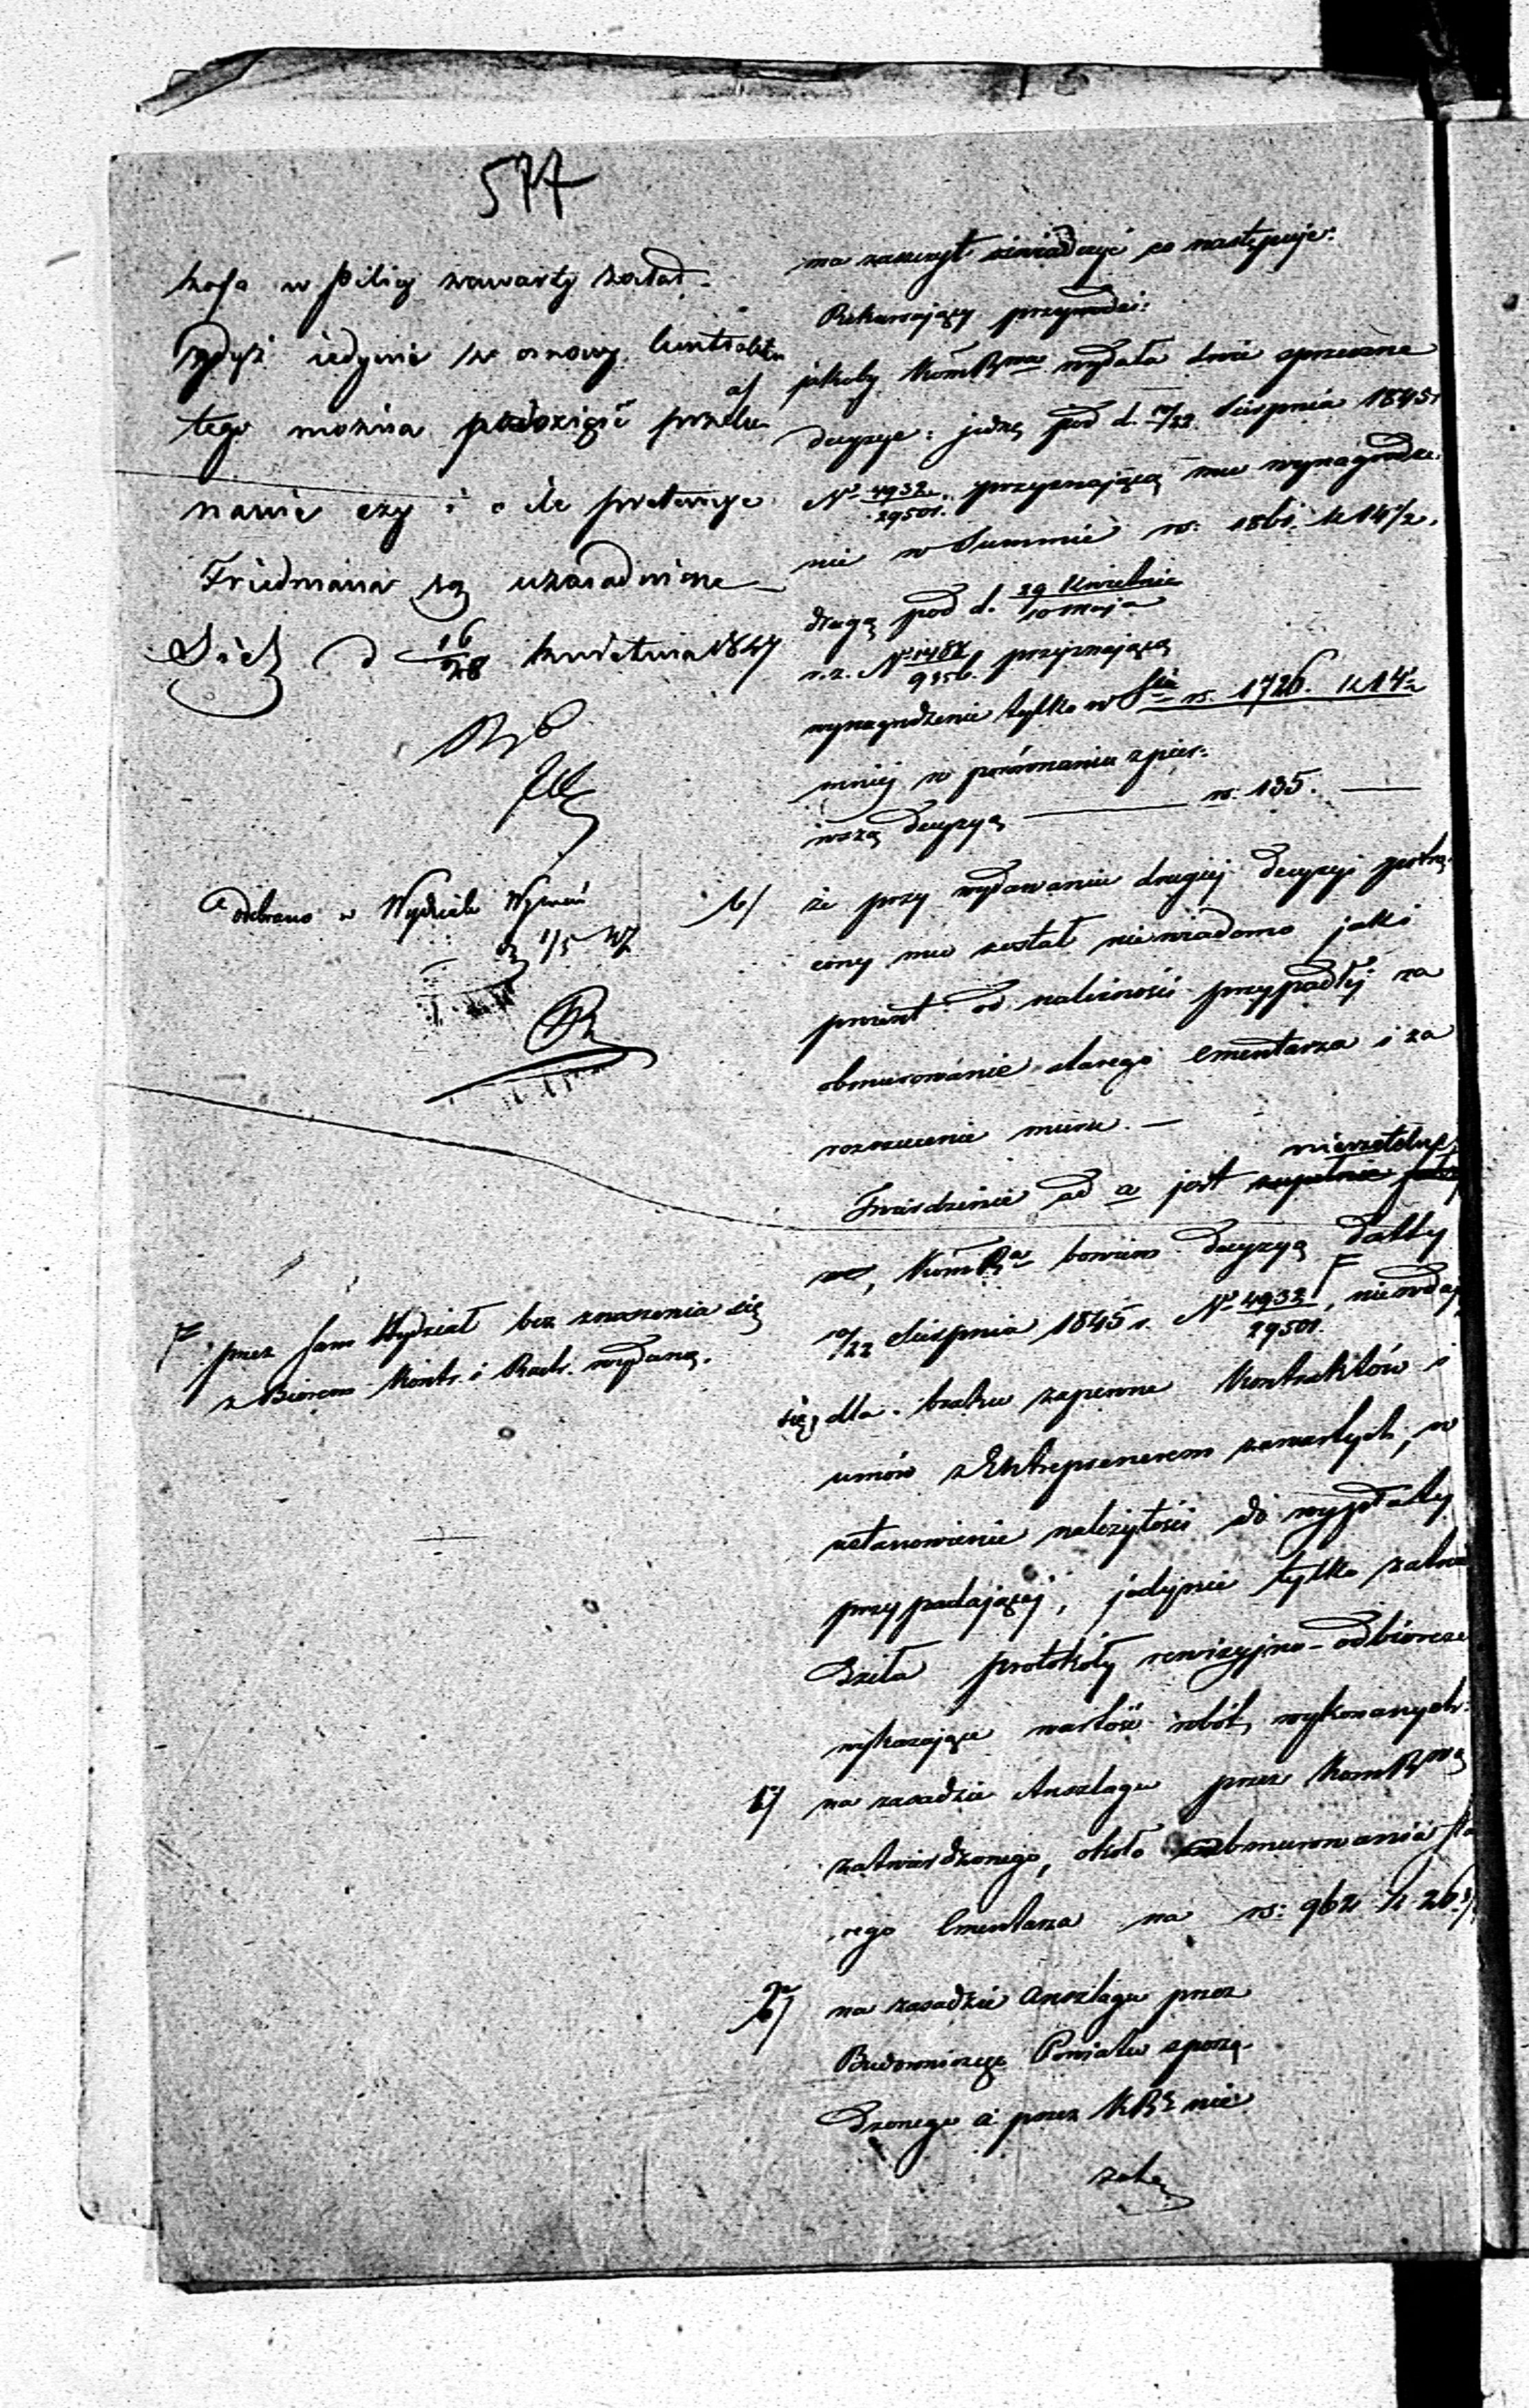 577
w Pilicy zawarty został
gdyż jedynie z osnowy kontraktu
tego można powziąść przeko
nanie czy i o ile pretensye
Friedmana są uzasadnione
d 16/28 kwietnia 1847
Odebrano w Wydziale Wyznań
d 1/5 47
F. przez sam Wydział bez znoszenia się
z Biórem Kontr. i Rach. wydaną.
ma zaszczyt oświadczyć co następuje:
Rekurujący przywodzi:
a/ jakoby KomRząa wydała dwie sprzeczne
decyzye: jedną pod d. 10/22 Sierpnia 1845 r
No 4932/29501. przyznającą mu wynagrodze-
nie w Summie rs: 1861. k 14 1/2.
drugą pod d. 29 Kwietnia/10 maja
r.z. No 1487/9356. przyznającą
wynagrodzenie tylko w Sie rs. 1726. k 14 1/2
mniej w porównaniu z pier-
wszą decyzyą — rs. 135. —
b/ że przy wydawaniu drugiej decyzyi potrą-
cony mu został niewiadomo jaki
procent od należności przypadłej za
obmurowanie starego cmentarza i za
rozrzucenie muru. —
Twierdzenie ad a jest zupełnie
KomRa bowiem decyzyą datty
10/22 Sierpnia 1845 r. No 4932/29501. F, niewdając
się, dla braku zapewne Kontraktów i
umów z Entreprenerem zawartych, w
ustanowienie należytości do wypłaty
przypadającej, jedynie tylko zatwier
dziła protokóły rewizyjno-odbiorcze
wykazujące wartość robót, wykonanych:
1/ na zasadzie Anszlagu przez KomRząą
zatwierdzonego, około obmurowania sta
rego Cmentarza na rs: 962 k 26
2/ na zasadzie Anszlagu przez
Budowniczego Powiatu sporzą-
dzonego a przez KRą nie